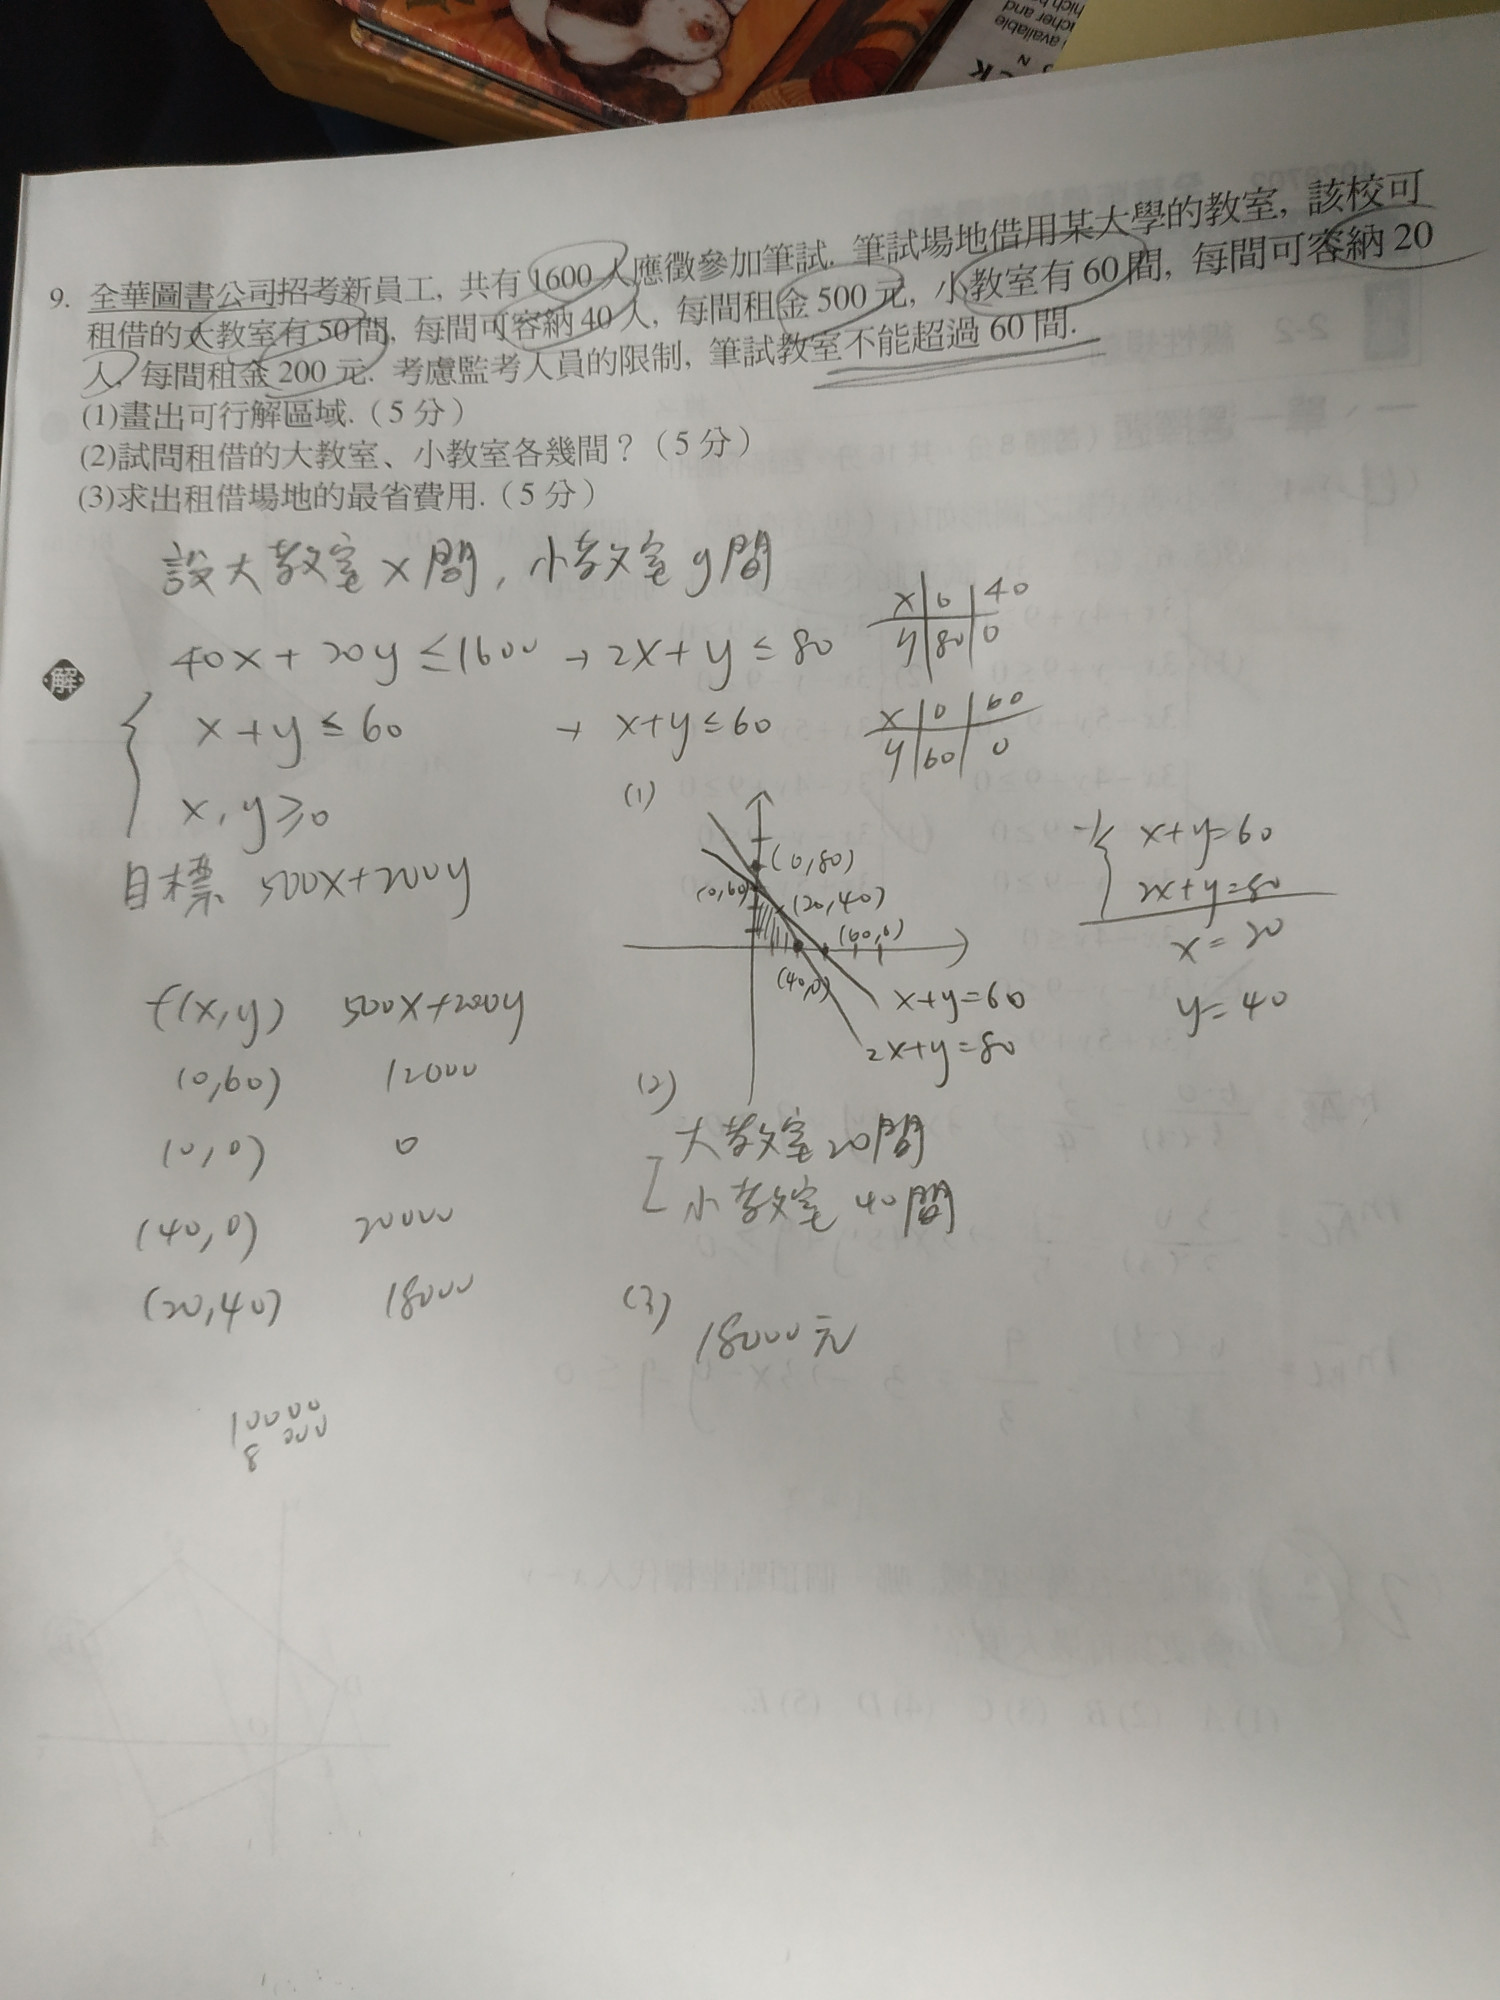 9. 全華圖書公司招考新員工, 共有 1600 人應徵參加筆試. 筆試場地借用某大學的教室, 該校可
租借的大教室有 50 間, 每間可容納 40 人, 每間租金 500 元, 小教室有 60 間, 每間可容納 20
人, 每間租金 200 元. 考慮監考人員的限制, 筆試教室不能超過 60 間.
(1)畫出可行解區域.（5 分）
(2)試問租借的大教室、小教室各幾間？（5 分）
(3)求出租借場地的最省費用.（5 分）
設大教室 x 間, 小教室 y 間
解
40x + 20y ≤ 1600 → 2x + y ≤ 80
x 0 40
y 80 0
x + y ≤ 60 → x+y ≤ 60
x 0 60
y 60 0
x, y ≥ 0
目標 500x+200y
f(x,y) 500x+200y
(0,60) 12000
(0,0) 0
(40,0) 20000
(20,40) 18000
10000
8000
(1)
(0,80)
(0,60)
(20,40)
(60,0)
(40,0)
x+y=60
2x+y=80
x+y=60
2x+y=80
x = 20
y = 40
(2)
大教室 20 間
小教室 40 間
(3)
18000 元